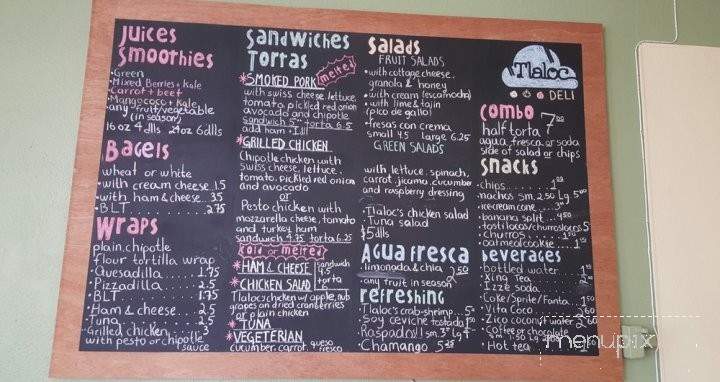 Juices
Smoothies
•Green
•Mixed Berries + Kale
•Carrot + beet
•Mangococo + Kale
•any fruit/vegetable
(in season)
16oz 4dlls 24oz 6dlls
Bagels
wheat or white
•with cream cheese 1.5
•with ham & cheese 3.5
•BLT 2.75
Wraps
plain, chipotle
flour tortilla wrap
•Quesadilla 1.75
•Pizzadilla 2.5
•BLT 1.75
•Ham & cheese 2.5
•Tuna 2.5
•grilled chicken 3
with pesto or chipotle
sauce
Sandwiches
Tortas
*SMOKED PORK melted
with swiss cheese, lettuce,
tomato, pickled red onion
avocado and chipotle
sandwich 5- torta 6.5
add ham + 1 dll
*GRILLED CHICKEN
Chipotle chicken with
swiss cheese, lettuce,
tomato, pickled red onion
and avocado
or
Pesto chicken with
mozzarella cheese, tomato
and turkey ham
sandwich 4.75 torta 6.25
Cold or melted
*HAM & CHEESE sandwich
4.5
*CHICKEN SALAD torta
Tlaloc chicken w/ apple, nuts
grapes and dried cranberries
or plain chicken
*TUNA
*VEGETERIAN
cucumber, carrot, queso
fresco
Salads
FRUIT SALADS
•with cottage cheese,
granola & honey
•with cream (escamocha)
•with lime & tajin
(pico de gallo)
•fresas con crema
small 4.5 large 6.25
GREEN SALADS
with lettuce, spinach,
carrot, jicama, cucumber
and raspberry dressing
•Tlaloc's chicken salad
•Tuna salad
$5 dlls
Agua fresca
•limonada & chia 2.50
•any fruit in season
refreshing
•Tlaloc's crab-shrimp 5
•Soy ceviche tostada
•Raspado
•Chamango
Tlaloc
DELI
Combo 7.00
half torta
agua fresca or soda
side of salad or chips
Snacks
•chips
•nachos sm. 2.50 Lg 5.00
•ice cream cone
•banana split 4.50
•tostilocos/churrolocos
•churros
•oatmeal cookie
beverages
•bottled water
•Xing Tea
•Izze Soda
•Coke/Sprite/Fanta
•Vita Coco
•Zico coconut water
•Coffee or chocolate
•Hot tea
menupix